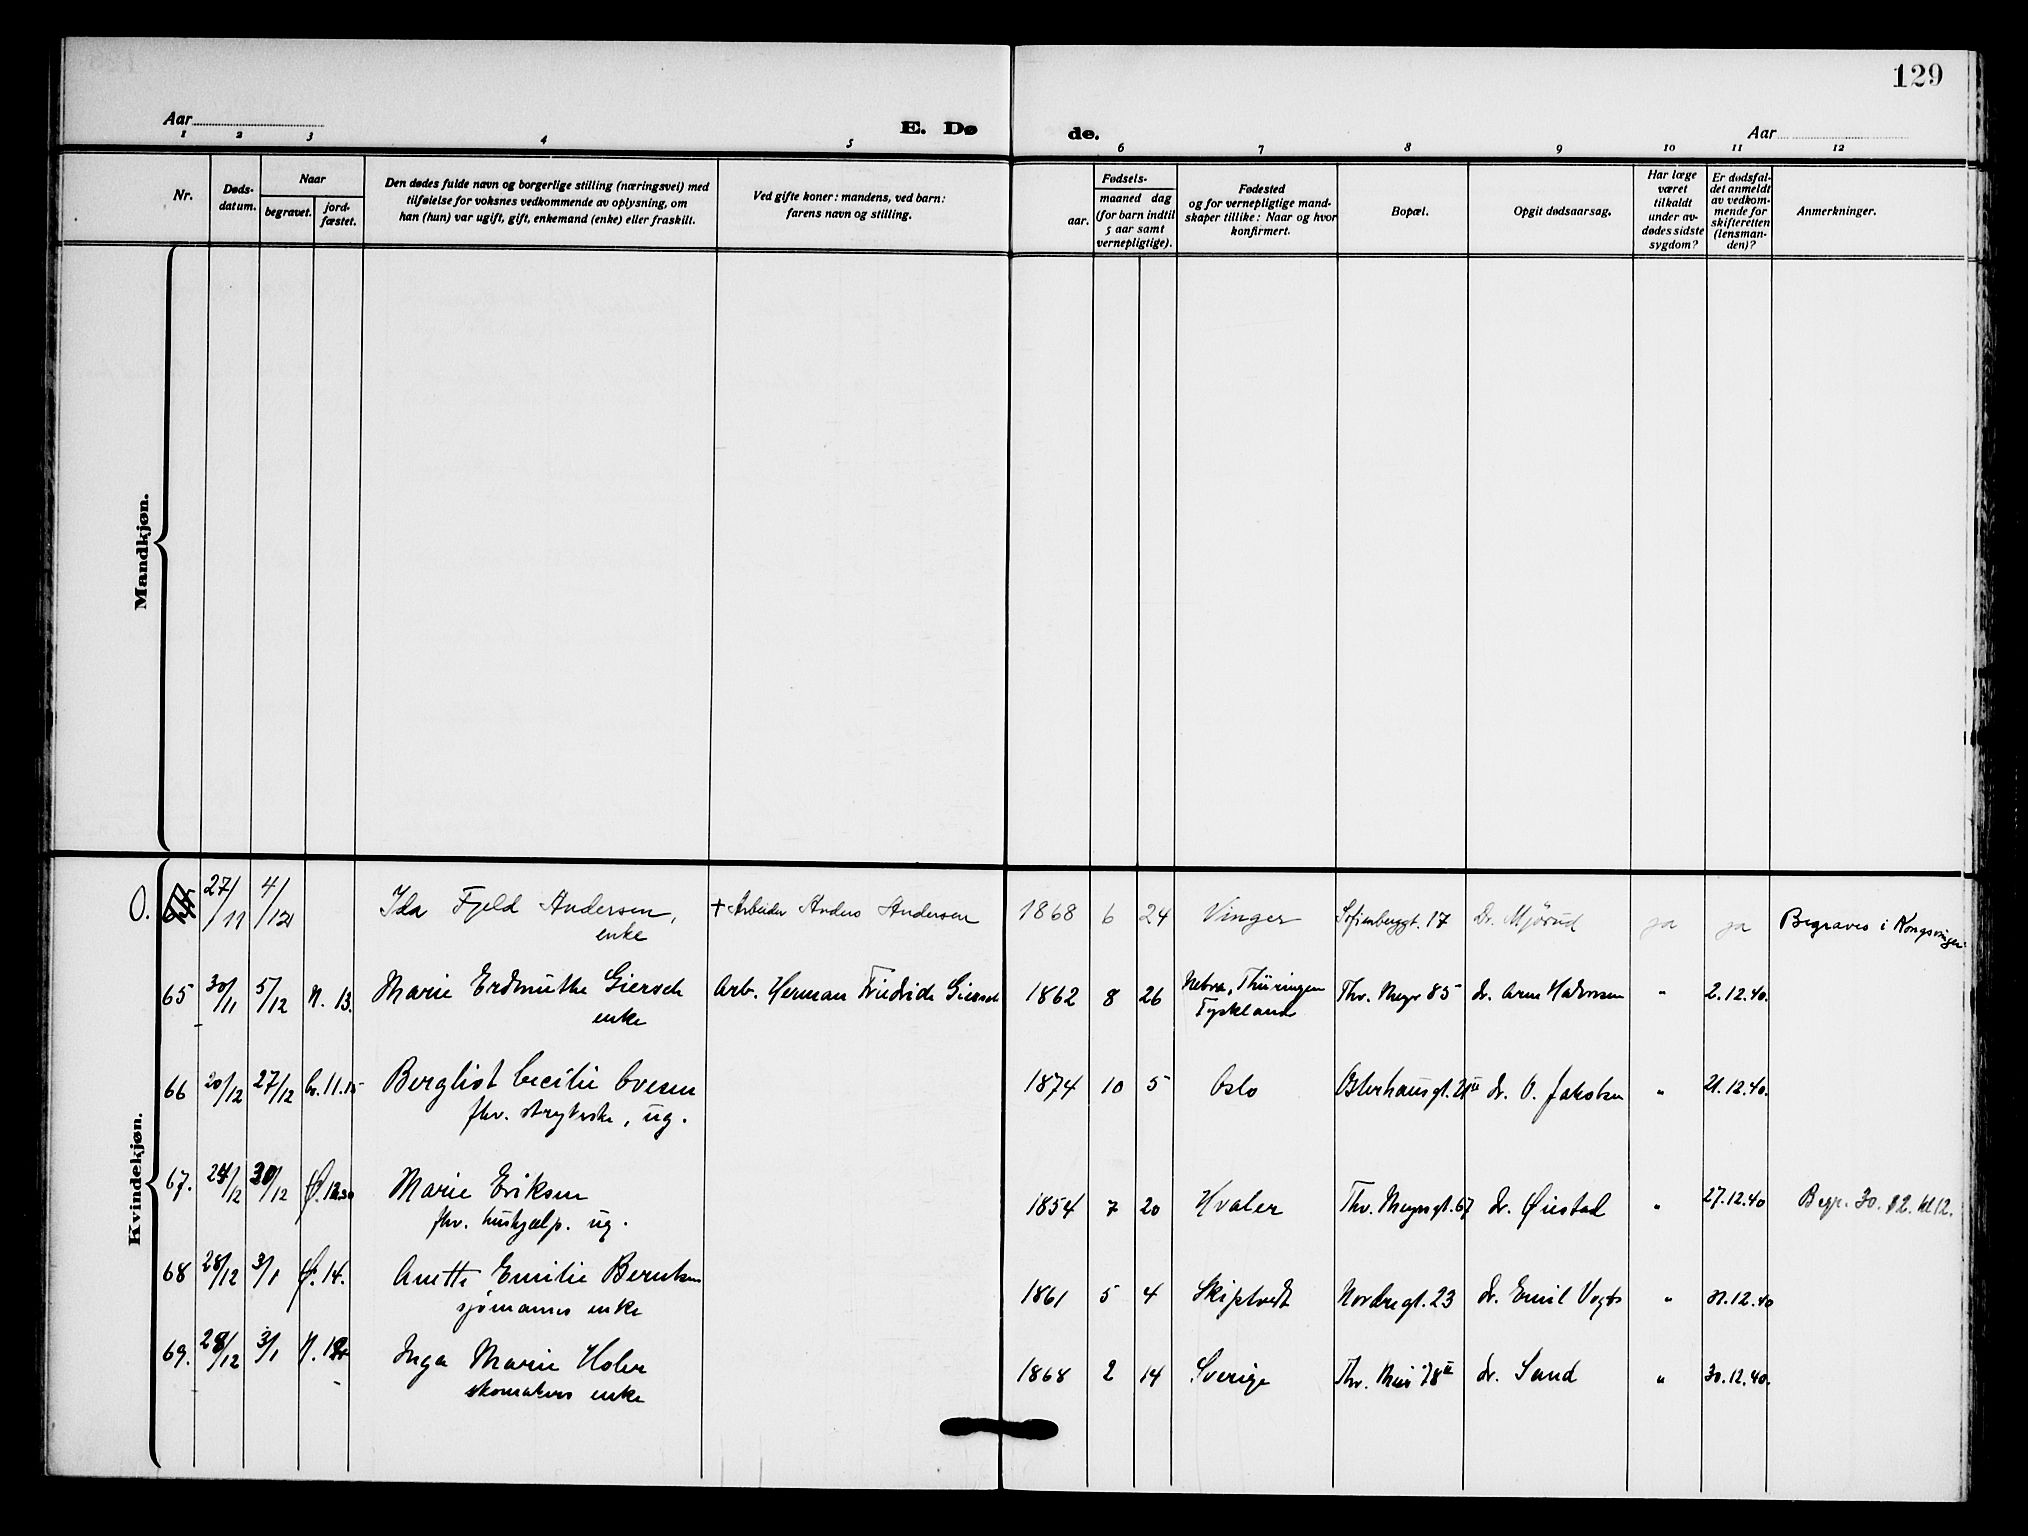 129
Aar
E. Dø
de.
Aar
1 2 3 4 5 6 7 8 9 10 11 12
Nr.
Døds-
datum.
Naar
begravet.
jord-
fæstet.
Den dødes fulde navn og borgerlige stilling (næringsvei) med
tilføielse for voksnes vedkommende av oplysning, om
han (hun) var ugift, gift, enkemand (enke) eller fraskilt.
Ved gifte koner: mandens, ved barn:
farens navn og stilling.
Fødsels-
aar.
maaned dag
(for barn indtil
5 aar samt
vernepligtige).
Fødested
og for vernepligtige mand-
skaper tillike: Naar og hvor
konfirmert.
Bopæl.
Opgit dødsaarsag.
Har læge
været
tilkaldt
under av-
dødes sidste
sygdom?
Er dødsfal-
det anmeldt
av vedkom-
mende for
skifteretten
(lensman-
den)?
Anmerkninger.
Mandkjøn.
Kvindekjøn.
O. 27/11 4/12 Ida Fjeld Andersen, + Arbeider Anders Andersen 1868 6 24 Vinger Sofienberggt. 17 Dr. Mjørud ja ja Begraves i Kongsvinger.
enke
65 30/11 5/12 N. 13. Marie Erdmuthe Giersch Arb. Herman Friedrich Giersch 1862 8 26 Nebra, Thüringen Thv. Meyr 85 dr. Arne Halvorsen " 2.12.40.
enke Tyskland
66 20/12 27/12 Cr. 11.15 Bergliot Cecilie Ovesen 1874 10 5 Oslo Osterhausgt. dr. O. Jakobsen " 21.12.40.
fhv. strykerske, ug.
67. 24/12 30/12 Ø. Marie Eriksen 1854 7 20 Hvaler Thv. Meyrsgt. 67 dr. Øiestad " 27.12.40 Begr. 30. 12. kl 12.
fhv. hushjælp. ug.
68 28/12 3/1 Ø. 14. Anette Emilie Berntsen 1861 5 4 Skiptvedt Nordregt. 23 dr. Emil Vogt " 31.12.40
sjømannes enke
69. 28/12 3/1 N. Inga Marie Holer 1868 2 14 Sverige Thv. Meir 78 II dr. Sand " 30.12.40.
skomakers enke